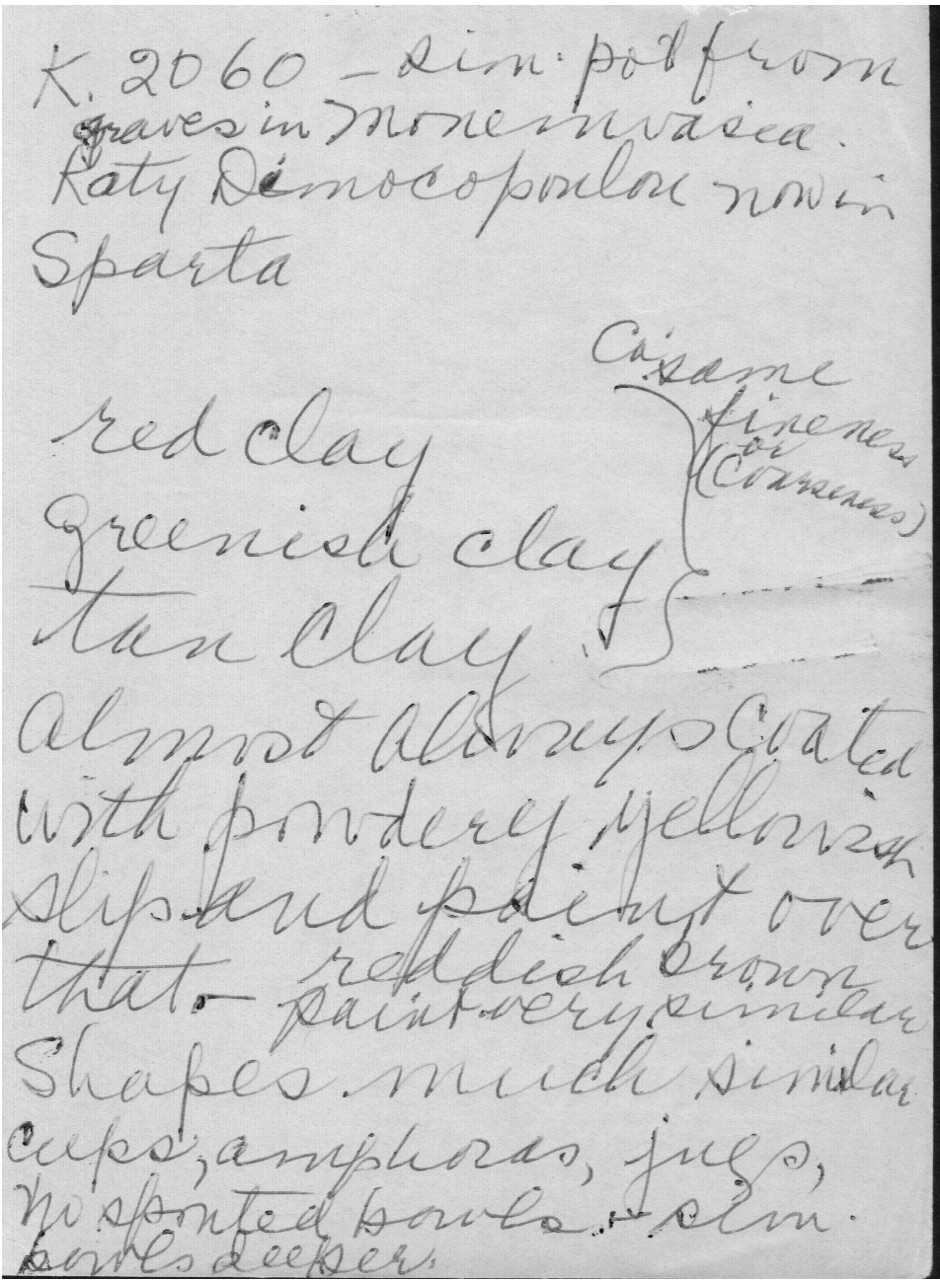 K. 2060 – sim. pot from
graves in Monemvasia.
Katy Dimocopoulou now in
Sparta
Ca. same
fineness
or
(Coarseness)
red clay
greenish clay
tan clay
Almost always coated
with powdery yellowish
slip and paint over
that – reddish brown
paint very similar
Shapes much similar
cups, amphoras, jugs,
no spouted bowls – sim.
bowls deeper.